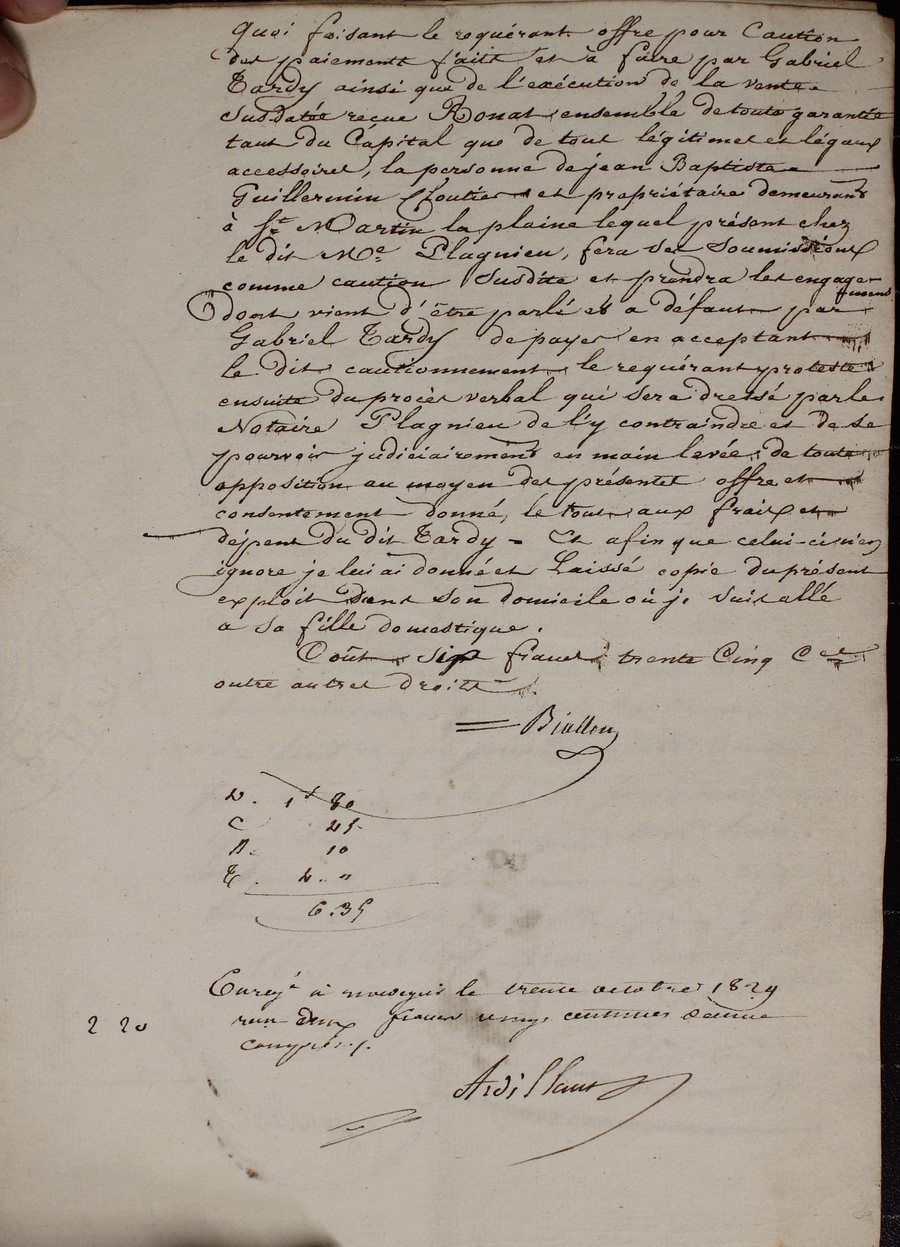 Quoi faisant le requérant offre pour Caution
des paiements faits et à faire par Gabriel
Tardy ainsi que de l'exécution de la vente
Susdatée reçue Ronat, ensemble de toute garantie
tant du Capital que de tout légitimes et légaux
accessoires, la personne de jean Baptiste
Guillermin Cloutier et propriétaire demeurant
à St Martin la plaine lequel présent chez
le dit Me Plagnieu, fera ses Soumissions
comme caution Susdite et prendra les engage-
ments
dont vient d'être parlé et a défaut par
Gabriel Tardy de payer en acceptant
le dit cautionnement, le requérant proteste
ensuite du procès verbal qui sera dressé par le
Notaire Plagnieu de l'y contraindre et de se
pourvoir judiciairement en main levée de toute
opposition au moyen des présentes offre et
consentement donné, le tout aux fraix et
dépens du dit Tardy - Et afin que celui-ci n'en
ignore je lui ai donné et Laissé copie du présent
exploit dans son domicile où je suis allé
a sa fille domestique.
Coût six francs trente Cinq Ces
outre autres droits
Biallon
1f 80
C 45
10
6.35
Euregt à le treize octobre 1829
2 20 deux francs vingt centimes dixième
compris.